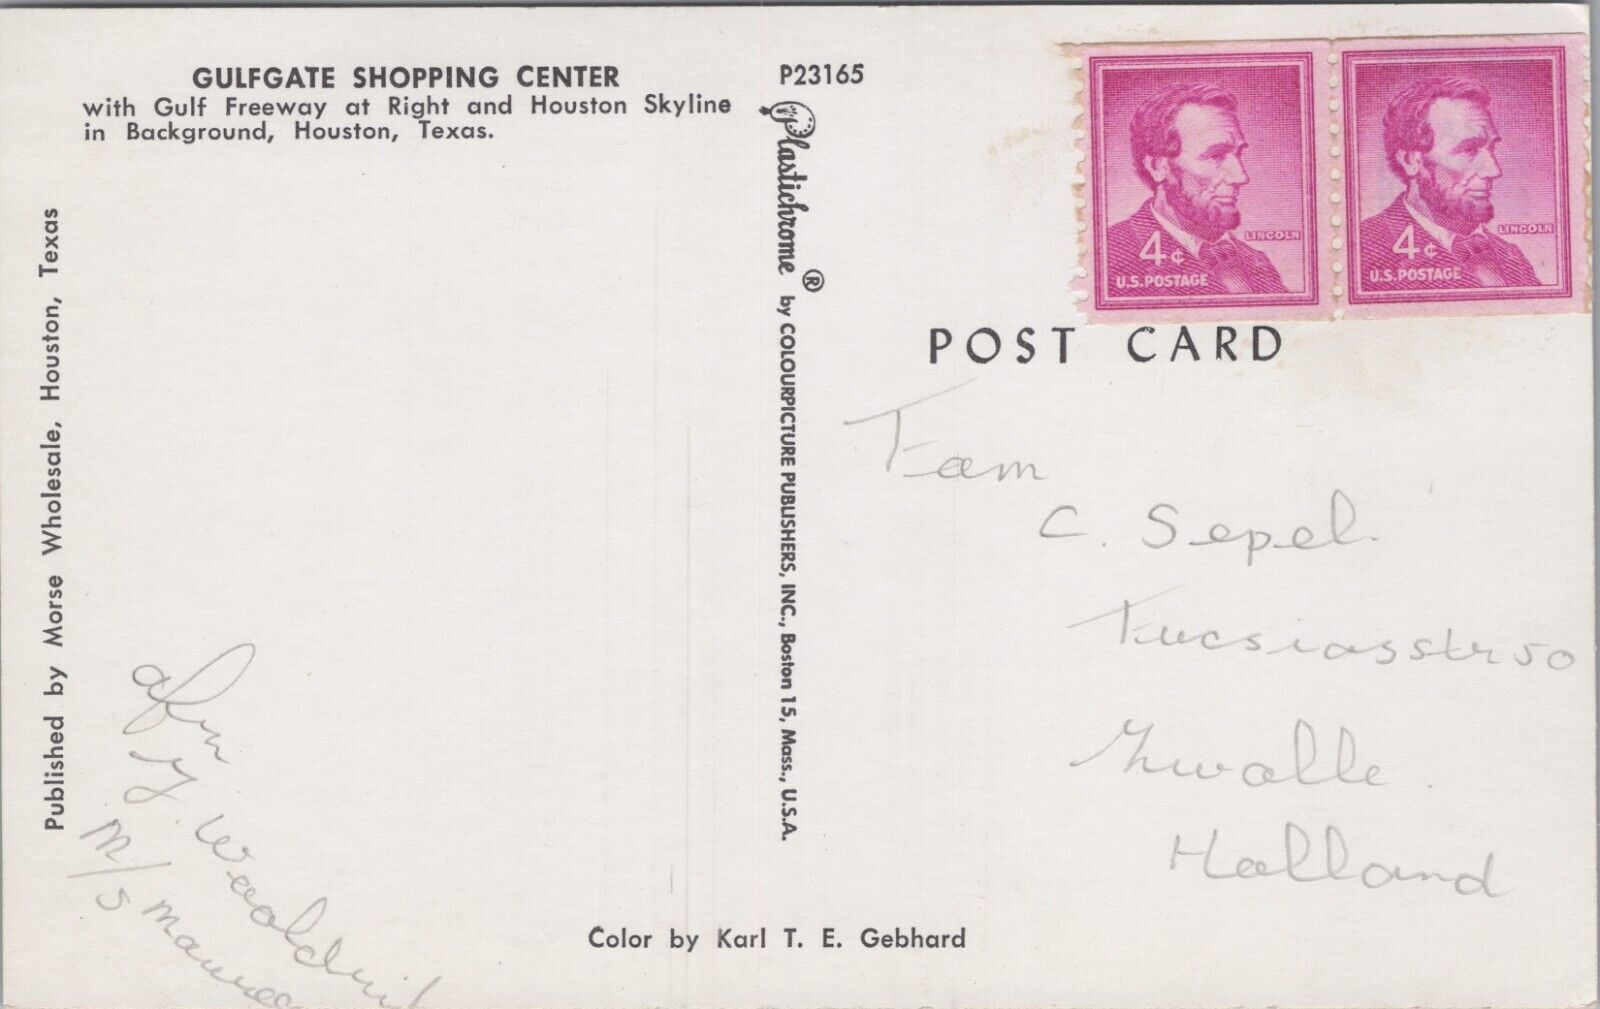 GULFGATE SHOPPING CENTER
with Gulf Freeway at Right and Houston Skyline
in Background, Houston, Texas.
P23165
Published by Morse Wholesale, Houston, Texas
Plastichrome ® by COLOURPICTURE PUBLISHERS, INC., Boston 15, Mass., U.S.A.
4¢
LINCOLN
U.S. POSTAGE
4¢
LINCOLN
U.S. POSTAGE
POST CARD
Fam
C. Sepel.
50
Zwolle.
Holland
afn
M/S
Color by Karl T. E. Gebhard